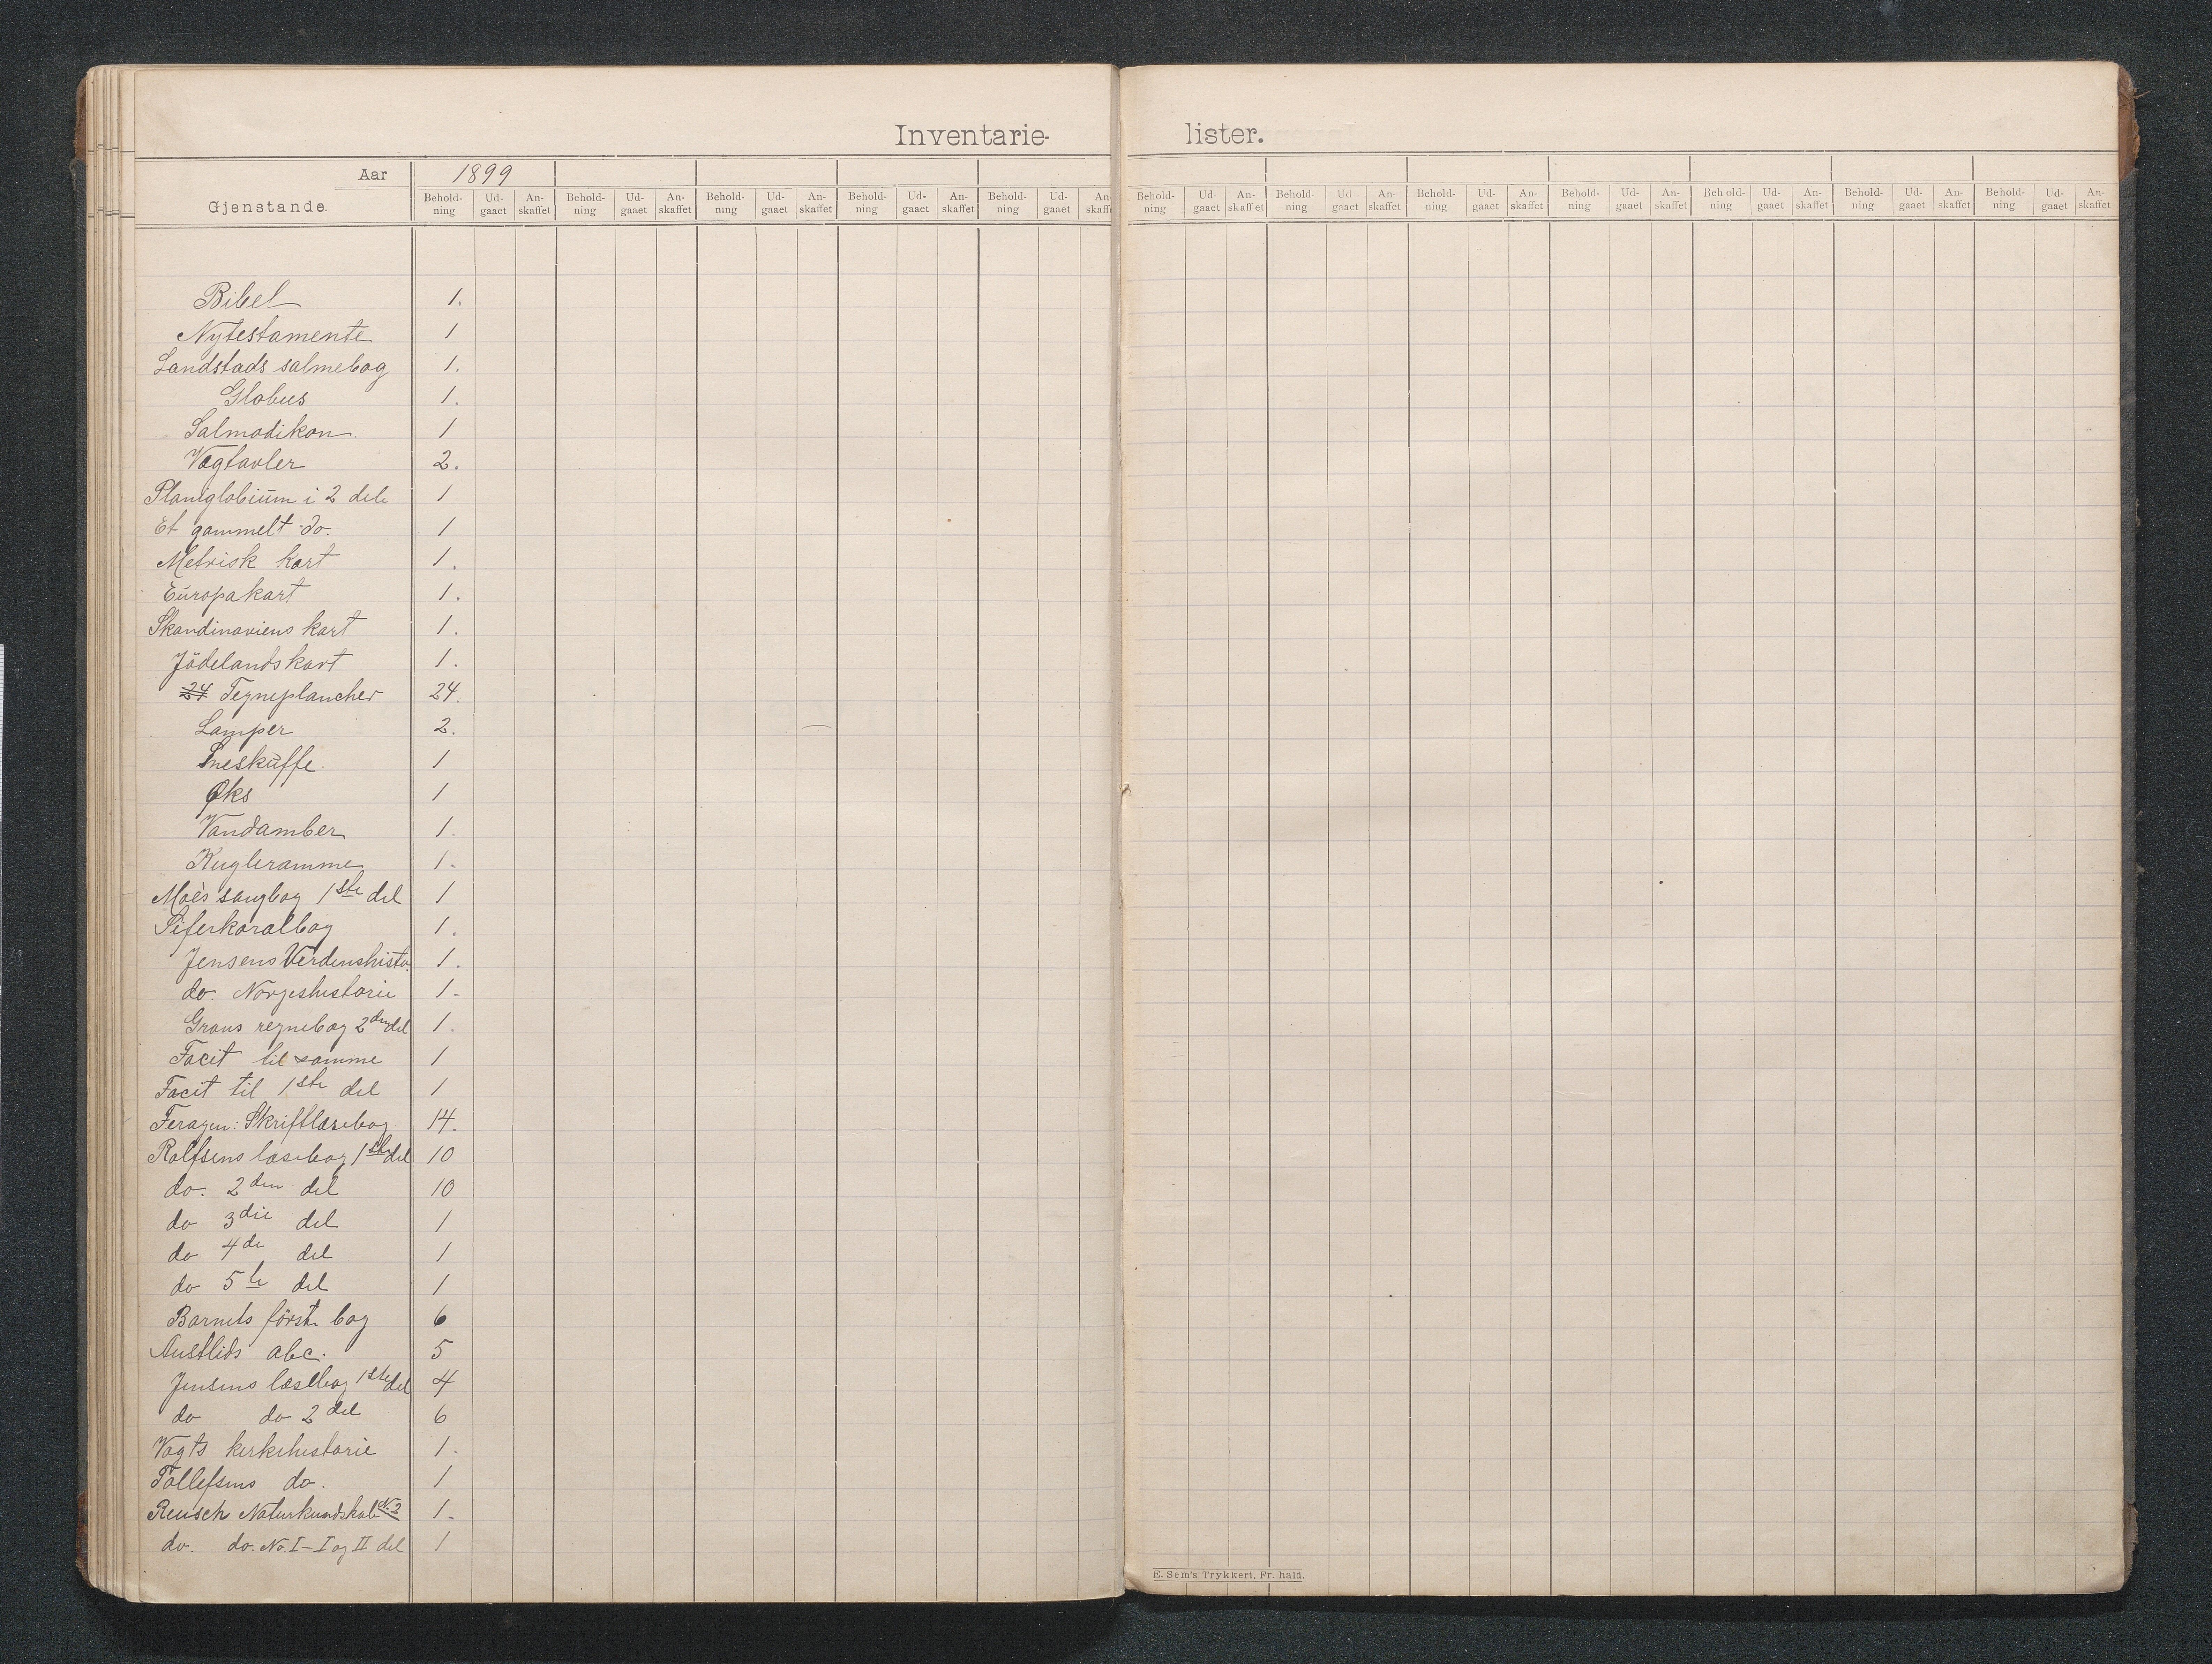 Inventarie- lister.
Aar 1899
Gjenstande.
Behold- Ud- An- Behold- Ud- An- Behold- Ud- An- Behold- Ud- An- Behold- Ud- An- Behold- Ud- An- Behold- Ud- An- Behold- Ud- An- Behold- Ud- An- Behold- Ud- An- Behold- Ud- An- Behold- Ud- An-
ning gaaet skaffet ning gaaet skaffet ning gaaet skaffet ning gaaet skaffet ning gaaet skaffe ning gaaet skaffet ning gaaet skaffet ning gaaet skaffet ning gaaet skaffet ning gaaet skaffet ning gaaet skaffet ning gaaet skaffet
Bibel 1.
Nytestamente 1
Landstads salmebog 1.
Globus 1.
Salmodikon. 1
Vægtavler 2.
Planiglobium i 2 dele 1
Et gammelt do. 1
Metrisk kart 1.
Europakart 1.
Skandinaviens kart 1.
Jödelandskart 1.
24 Tegneplancher 24.
Lamper 2.
Sneskuffe. 1
Øks 1
Vandamber 1.
Kugleramme 1.
Moès sangbog 1ste del 1
Siferkoralbog 1.
Jensens Verdenshisto. 1.
do. Norgeshistorie 1.
Grans regnebog 2den del 1.
Facit til samme 1
Facit til 1ste del 1
Feragen: Skriftlæsebog 14.
Rolfsens læsebog 1ste del 10
do. 2den del 10
do 3die del 1
do 4de del 1
do 5te del 1
Barnets förste bog 6
Austlids abc. 5
Jensens læsebog 1ste del 4
do do 2 del 6
Vogts kirkehistorie 1.
Tollefsens do. 1
Reusch Naturkundskab N. 2 1.
do. do. No. I - I og II del 1
E. Sem's Trykkeri. Fr. hald.